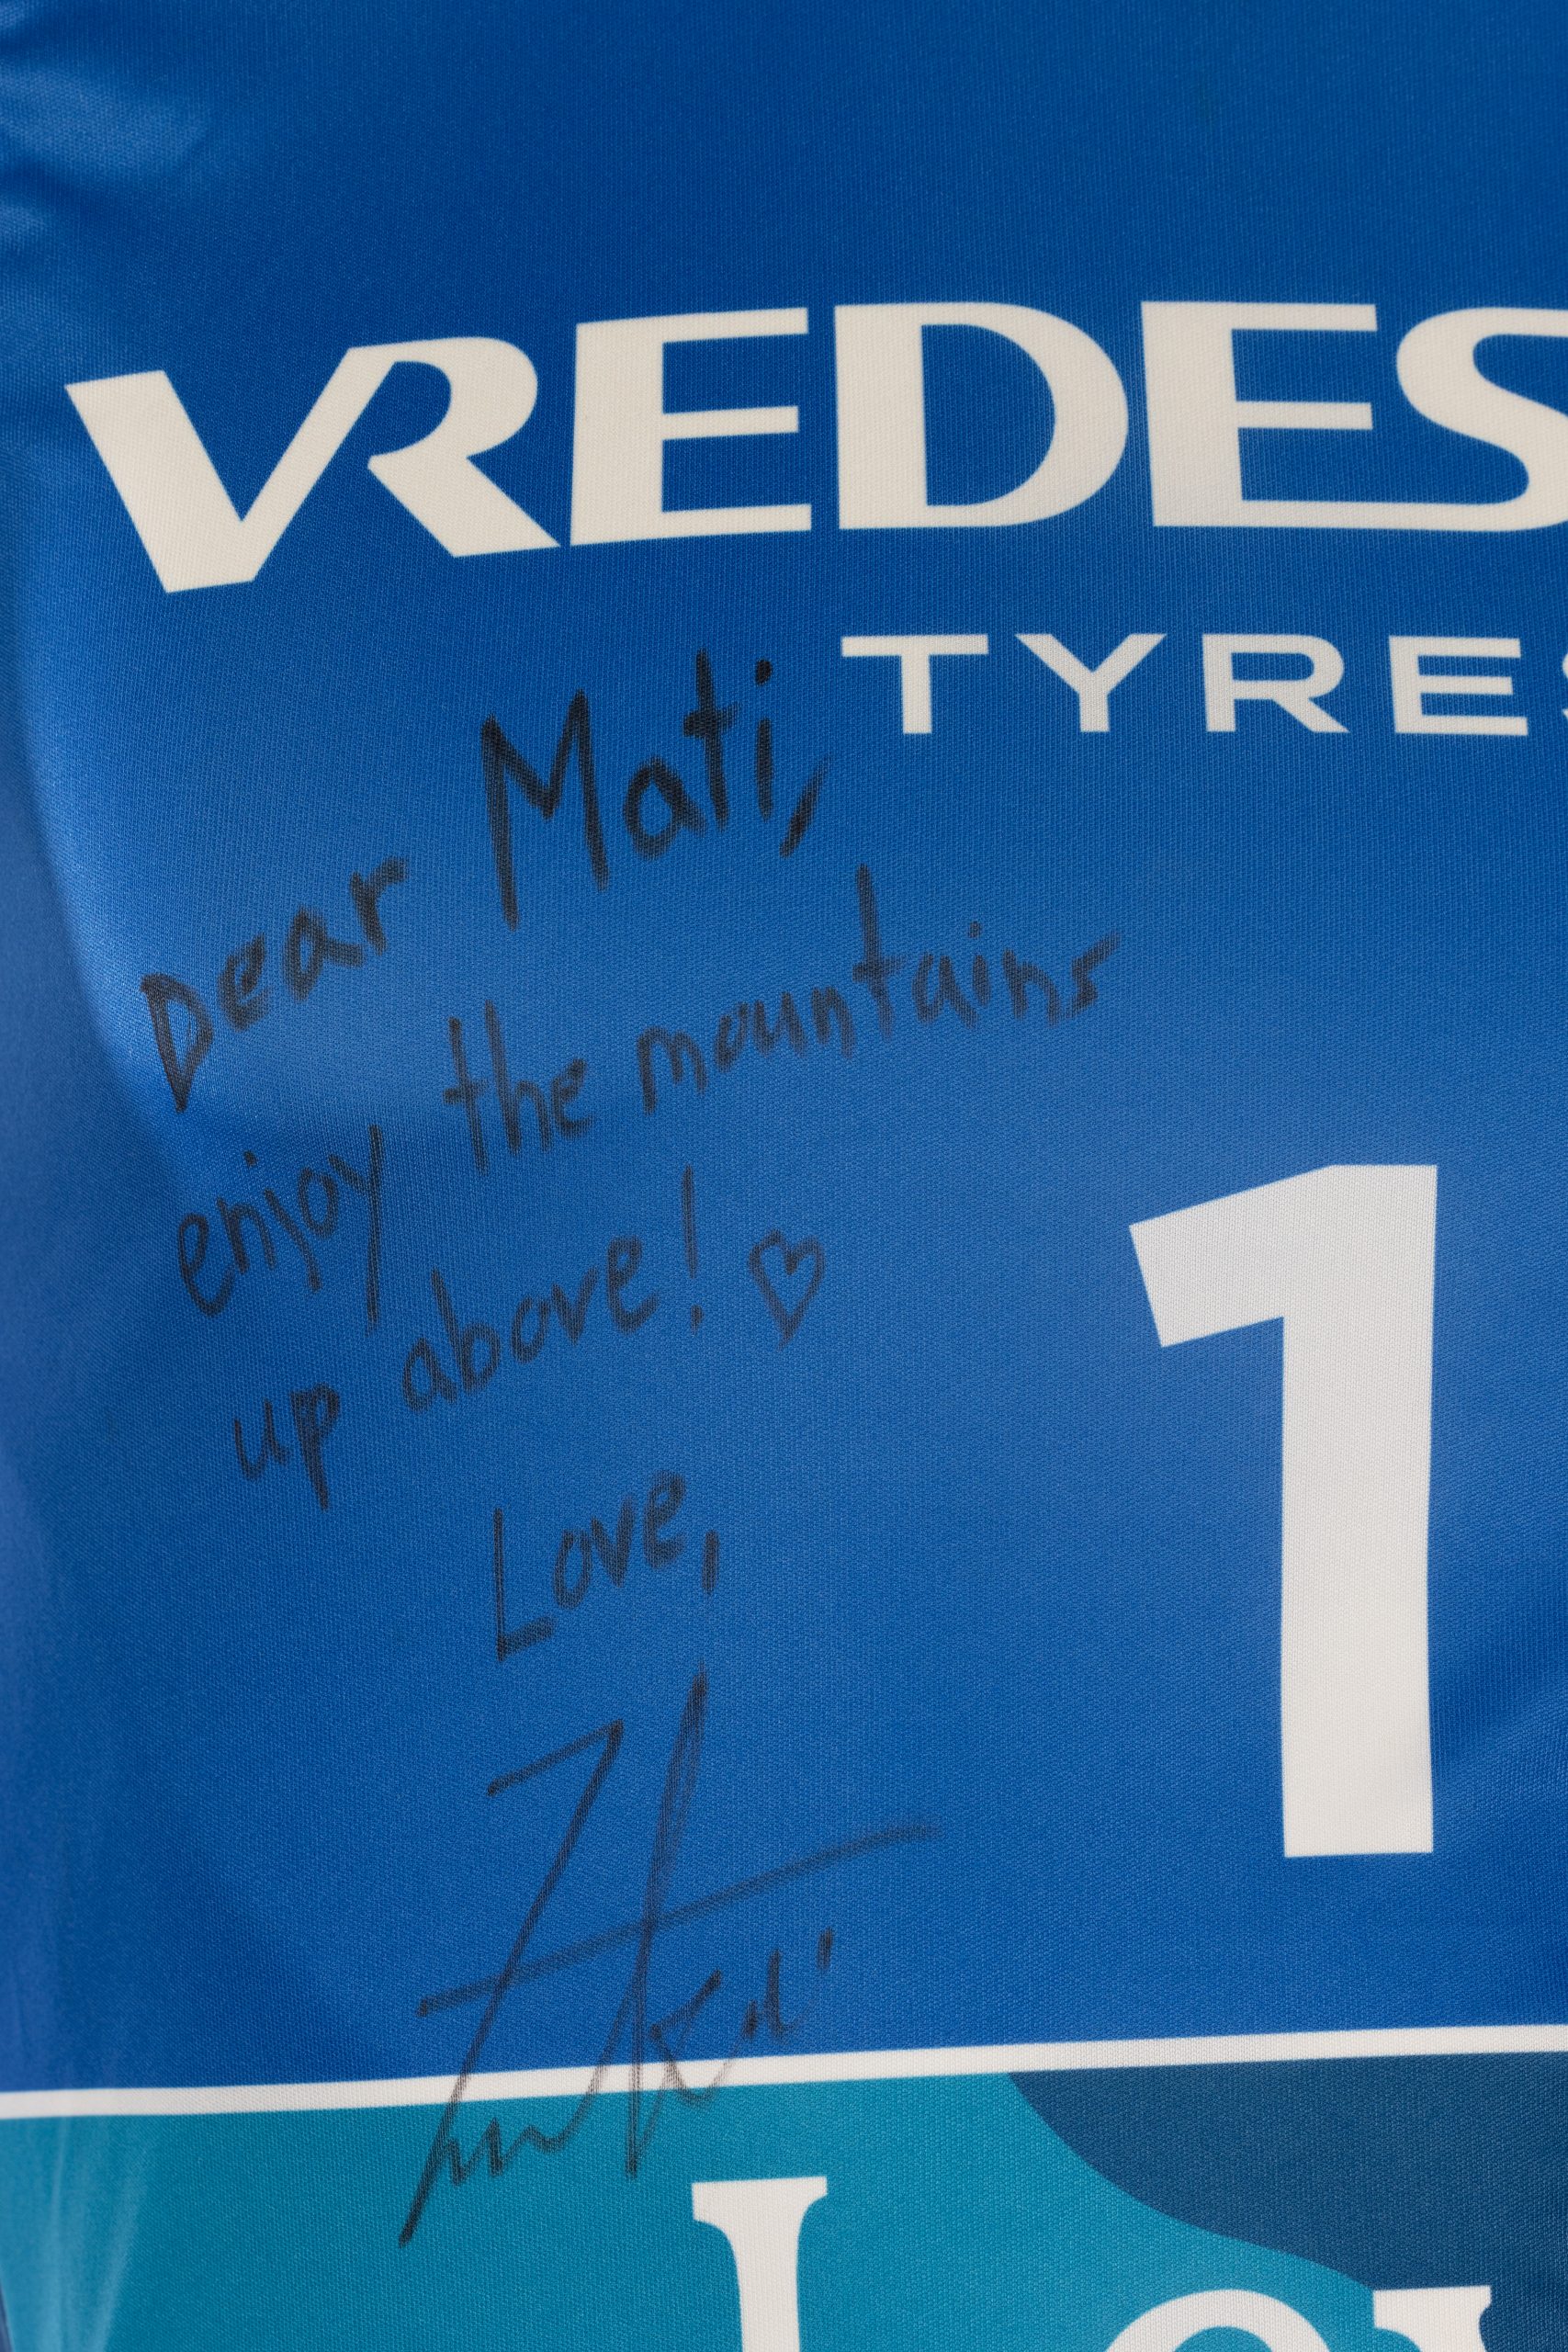 VREDES
TYRES
Dear Mati,
enjoy the mountains
up above! ♡
Love,
1